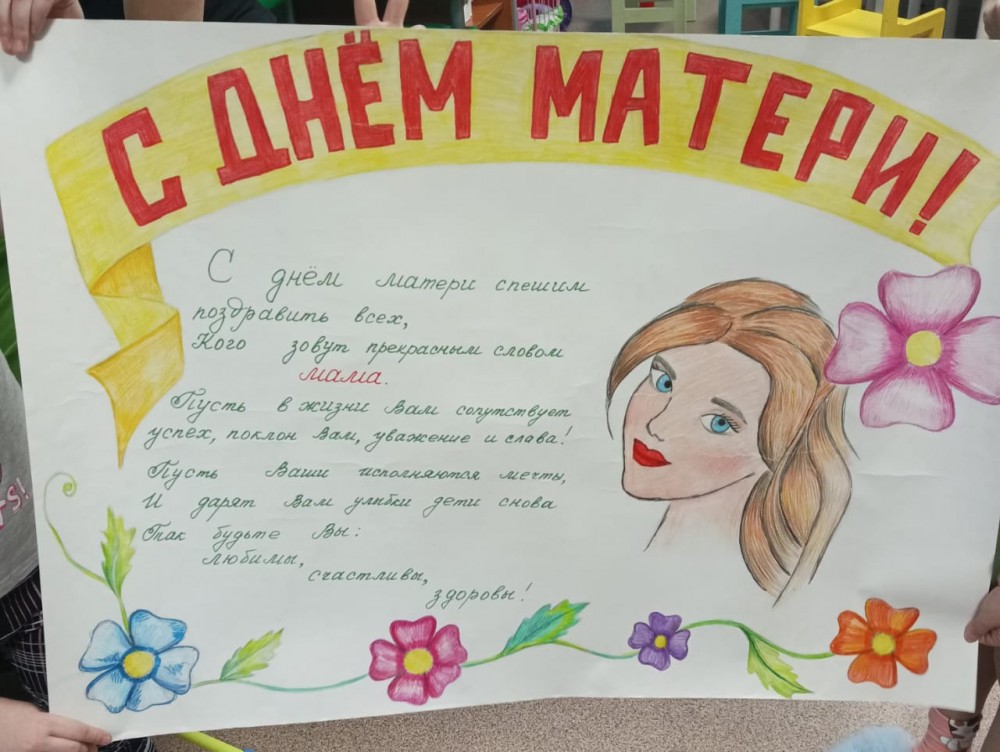 С ДНЁМ МАТЕРИ!
С днём матери спешим
поздравить всех,
Кого зовут прекрасным словом
мама.
Пусть в жизни Вам сопутствует
успех, поклон Вам, уважение и слава!
Пусть Ваши исполняются мечты,
И дарят Вам улыбки дети снова
Так будьте Вы:
любимы,
счастливы,
здоровы!